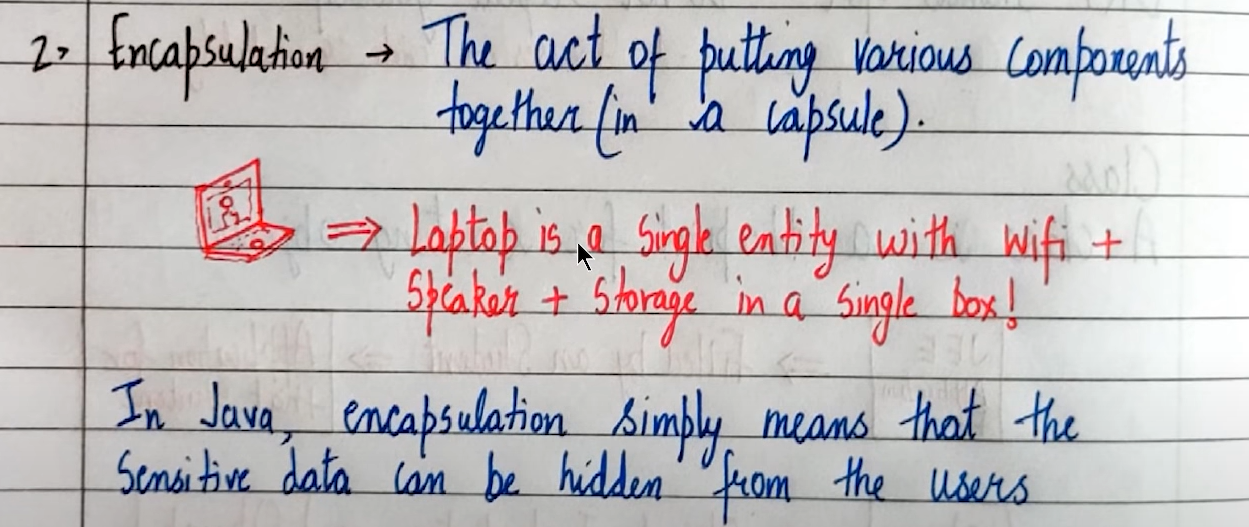 2> Encapsulation → The act of putting various components
together (in a capsule).
⇒ Laptop is a single entity with wifi +
Speaker + Storage in a single box!
In Java, encapsulation simply means that the
sensitive data can be hidden from the users